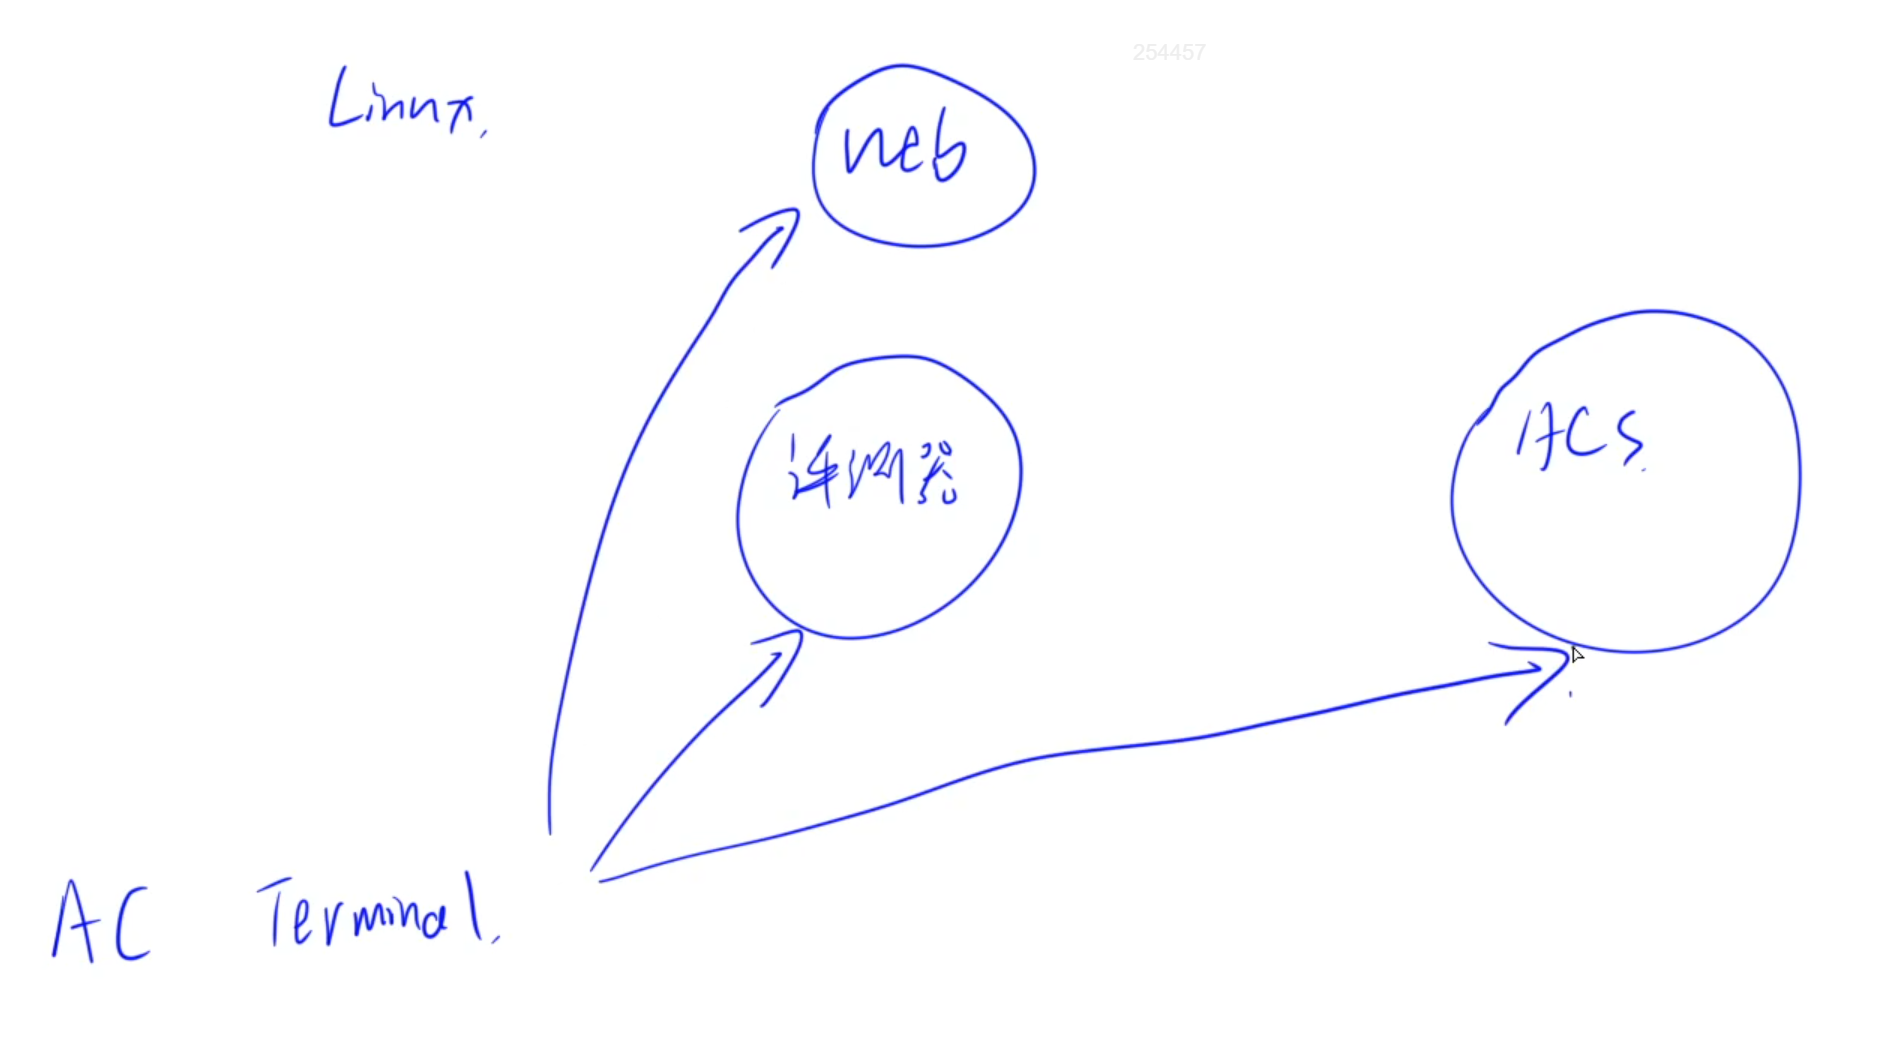 254457
Linux.
Web
评测器
ACS.
AC Terminal.